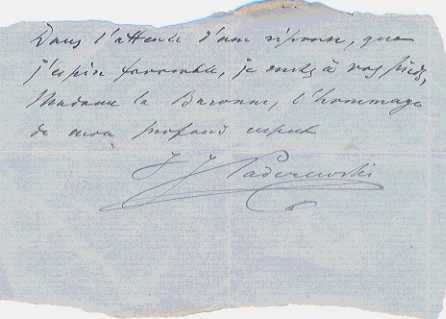 Dans l'attente d'une réponse, que
j'espère favorable, je mets à vos pieds,
Madame la Baronne, l'hommage
de mon profond respect
I J Paderewski